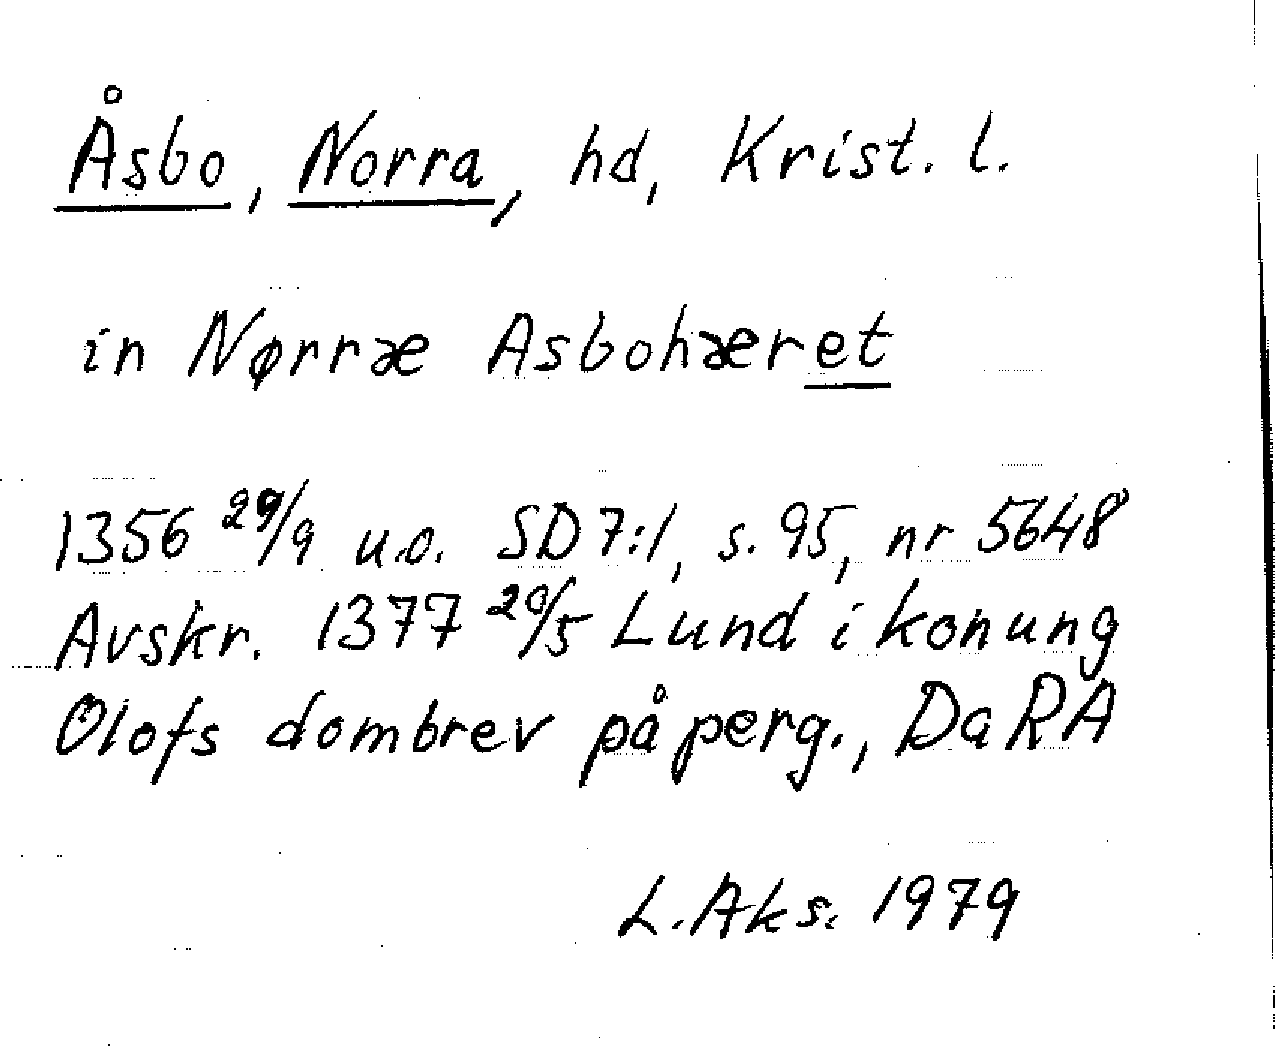 Åsbo, Norra, hd, Krist. l.
in Nørræ Asbohæret
1356 29/9 u.o. SD 7:1, s. 95, nr 5648
Avskr. 1377 20/5 Lund i konung
Olofs dombrev på perg., DaRA
L. Aks. 1979